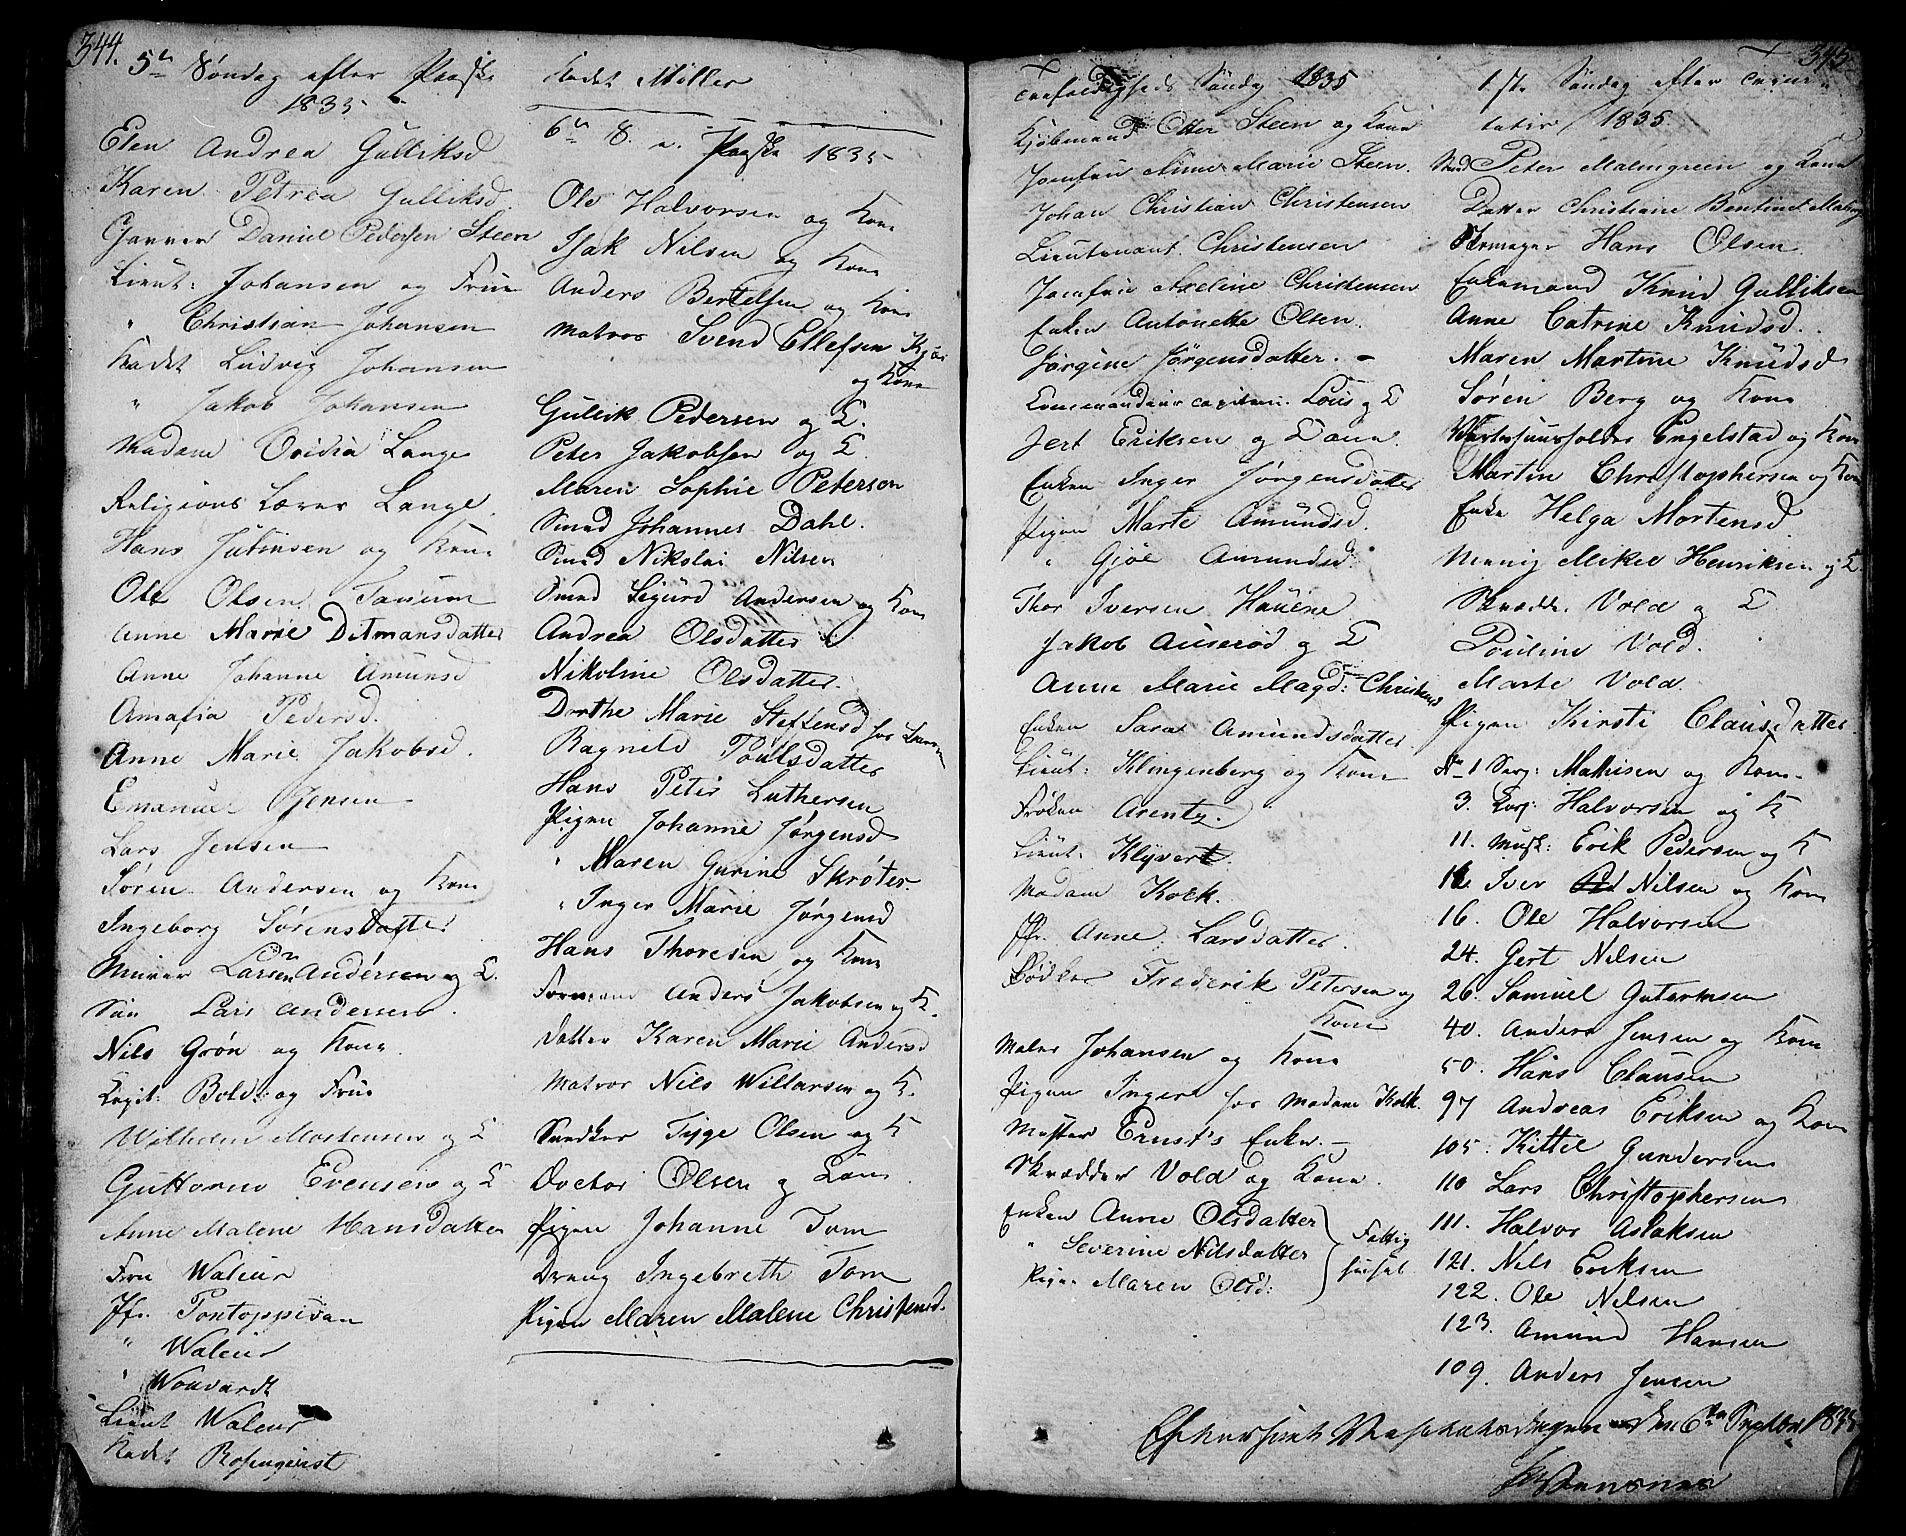 344.
5te Søndag efter Paaske
1835
Elen Andrea Gulliksd
Karen Petrea Gulliksd.
Garver Daniel Pedersen Steen
Lieut: Johansen og Frue
" Christian Johansen
Kadet Ludvig Johansen
" Jakob Johansen
Madame Ovidia Lange
Religions Lærer Lange.
Hans Julinsen og Kone
Ole Olsen Fanum
Anne Marie Ditmansdatter
Anne Johanne Amunsd
Amalia Pedersd.
Anne Marie Jakobsd.
Emanuel Jensen
Lars Jensen
Søren Andersen og Kone
Ingeborg Sørensdatter
Murer Larsen Andersen og K.
Søn Lars Andersen.
Nils Grøn og Kone.
Capit: Bold: og Frue
Wilhelm Mortensen og K
Guttorm Evensen og K
Anne Malene Hansdatter
Frue Waleur
Jfr. Pontoppidan
" Waleur
" Wouvardt
Lieut Waleur
Kadet Rosenqvist
Kadet Müller
6te S. e. Paaske 1835
Ole Halvorsen og Kone
Isak Nilsen og Kone
Anders Bertelsen og Kone
Matros Svend Ellefsen Kjær
og Kone
Gullik Pedersen og K.
Peter Jakobsen og K.
Maren Sophie Peterson
Smed Johannes Dahl.
Smed Nikolai Nilsen
Smed Sigurd Andersen og Kone
Andrea Olsdatter
Nikoline Olsdatter.
Dorthe Marie Steffensd hos
Ragnild Poulsdatter
Hans Peter Luthersen
Pigen Johanne Jørgensd
" Maren Gurine Skrøter.
" Inger Marie Jørgensd
Hans Thoresen og Kone
Formand Anders Jakobsen og K.
Datter Karen Marie Andersd
Matros Nils Willarsen og K.
Snedker Tyge Olsen og K
Doctor Olsen og Kone.
Pigen Johanne Tom
Dreng Ingebreth Tom
Pigen Maren Malene Christensd.
345
Trefoldigheds Søndag 1835
Kjøbmand Otter Steen og Kone
Jomfru Anne Marie Steen.
Johan Christian Christensen
Lieutenant Christensen
Jomfru Axeline Christensen
Enken Antonette Olsen.
Jørgine Jørgensdatter. -
Commandeur capitein: Lous og K
Jert Eriksen og Kone.
Enken Inger Jørgensdatter
Pigen Marte Amundsd.
" Gjøe Amundsd.
Thor Iversen Hauene
Jakob Auserød og K
Anne Marie Magd: Christensd
Enken Sara Amundsdatter.
Lieut: Klingenberg og Kone
Frøken Arentz.
Lieut: Klyvert
Madam Kolk.
Jfr. Anne Larsdatter.
Bødker Frederik Petersen og
Kone
Maler Johansen og Kone
Pigen Inger hos Madam Kolk.
Mester Ernst's Enke. -
Skrædder Vold og Kone.
Enken Anne Olsdatter
" Severine Nilsdatter
Pigen Maren Olsd:
Fattig
huset
1ste Søndag efter Trini
tatis 1835.
Smed Peter Malmgreen og Kone
Datter Christiane Bentine Malmg
Skomager Hans Olsen.
Enkemand Knud Gulliksen
Anne Catrine Knudsd.
Maren Martine Knudsd
Søren Berg og Kone
Værtshuusholder Engelstad og Kone
Martin Christophersen og Kone
Enke Helga Mortensd.
Mikel Henriksen og K.
Skrædd. Vold og K
Pouline Vold.
Marte Vold.
Pigen Kirsti Clausdatter.
No 1 Serj: Mathisen og Kone
3. Corp: Halvorsen og K
11. Musk: Erik Pedersen og K
12. Iver Nilsen og Kone
16. Ole Halvorsen
24. Gert Nilsen
26. Samuel Gutormsen
40. Anders Jensen og Kone
50. Hans Clausen
97 Andreas Eriksen og Kone
105. Kittel Gundersen
110 Lars Christophersen
111. Halvor Aslaksen
121. Nils Eriksen
122. Ole Nilsen
123. Amund Hansen
109. Anders Jensen
Efterseet den 6te Septbr 1835